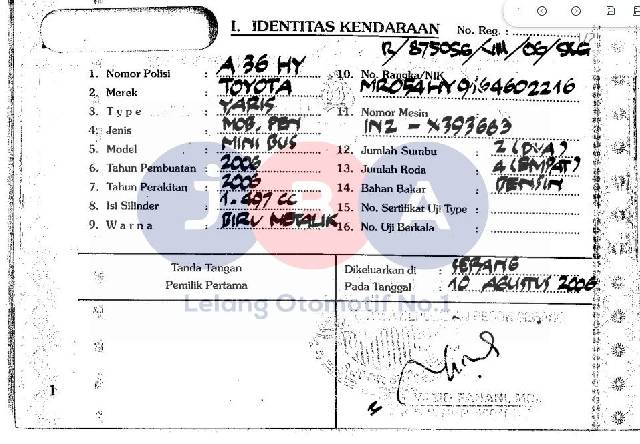 I. IDENTITAS KENDARAAN No. Reg. :
R/8750SG/
1. Nomor Polisi : A 36 HY
2. Merek : TOYOTA
3. Type : YARIS
4. Jenis : MOB. PEN
5. Model : MINI BUS
6. Tahun Pembuatan : 2006
7. Tahun Perakitan : 2006
8. Isi Silinder : 1.497 CC
9. Warna : BIRU METALIK
10. No. Rangka/NIK : MR054HY9164602216
11. Nomor Mesin : INZ - X393663
12. Jumlah Sumbu : 2 (DUA)
13. Jumlah Roda : 4 (EMPAT)
14. Bahan Bakar : BENSIN
15. No. Sertifikat Uji Type :
16. No. Uji Berkala :
JBA
Lelang Otomotif No.1
Tanda Tangan
Pemilik Pertama
Dikeluarkan di : SERANG
Pada Tanggal : 10 AGUSTUS 2006
1